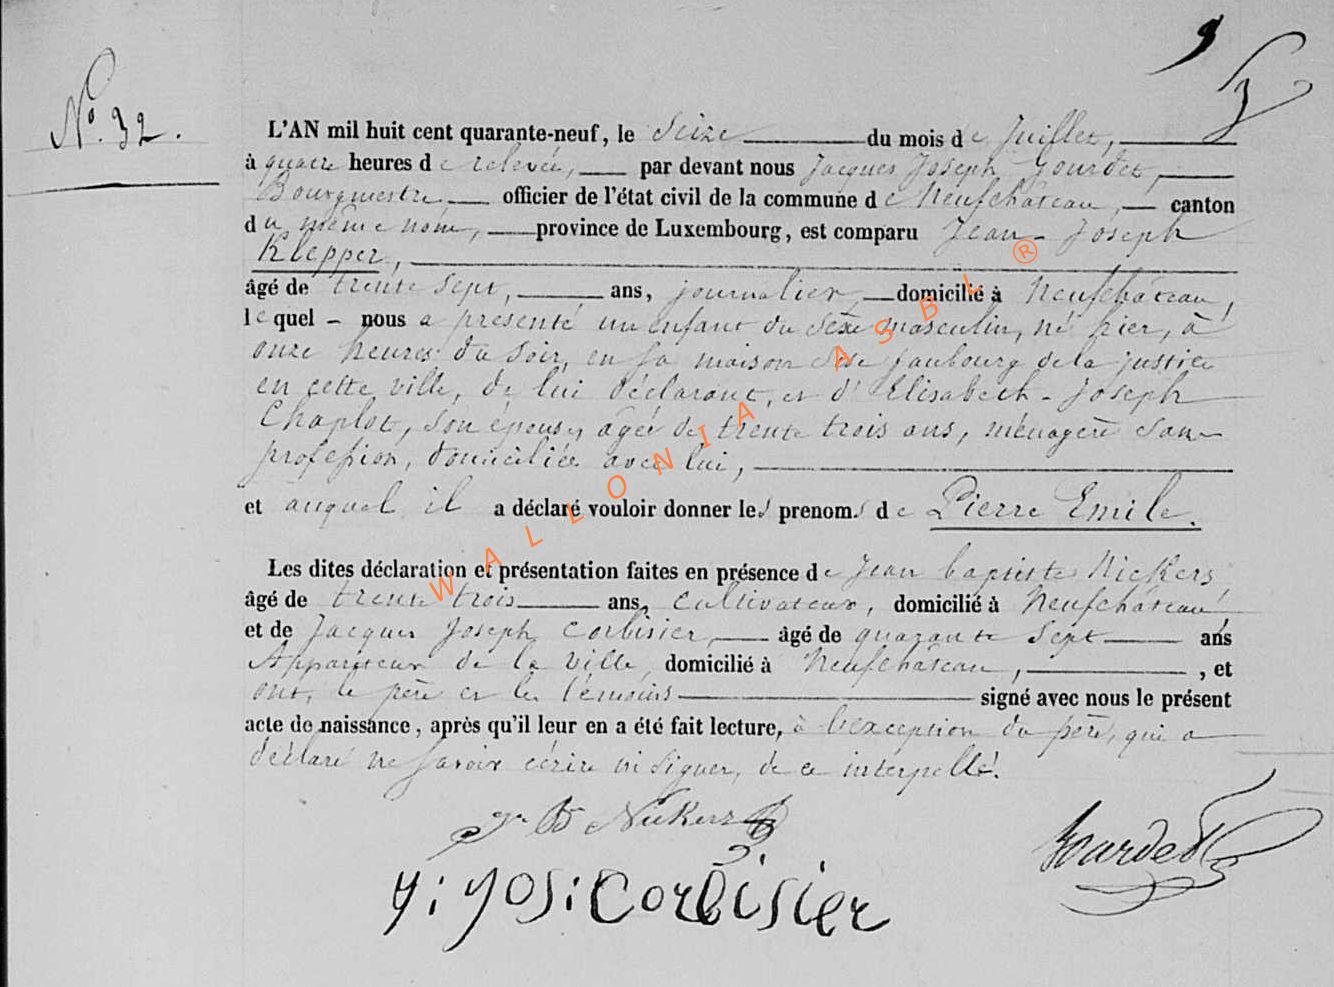 9
N° 32.
L'AN mil huit cent quarante-neuf, le Seize du mois de Juillet,
à quatre heures de relevée, par devant nous Jacques Joseph Gourdet,
Bourgmestre officier de l'état civil de la commune de Neufchâteau, canton
du même nom, province de Luxembourg, est comparu Jean-Joseph
Klepper,
âgé de trente sept, ans, journalier, domicilié à Neufchâteau,
le quel - nous a présenté un enfant du sexe masculin, né hier, à
onze heures du soir, en sa maison sise faubourg de la justice
en cette ville, de lui déclarant, et d'Elisabeth-Joseph
Chaplot, son épouse, agée de trente trois ans, ménagère sans
profession, domiciliée avec lui,
et auquel il a déclaré vouloir donner les prenoms de Pierre Emile.
Les dites déclaration et présentation faites en présence de Jean baptiste Nickers
âgé de trente trois ans, Cultivateur, domicilié à Neufchâteau
et de Jacques Joseph Corbisier, âgé de quarante Sept ans
Appariteur de la Ville domicilié à Neufchâteau, , et
ont, le père et les témoins signé avec nous le présent
acte de naissance, après qu'il leur en a été fait lecture, à l'exception du père, qui a
déclaré ne savoir écrire ni signer, de ce interpellé.
J. Bte Nickers
J: Jos: Corbisier
Gourdet
WALLONIA ASBL ®